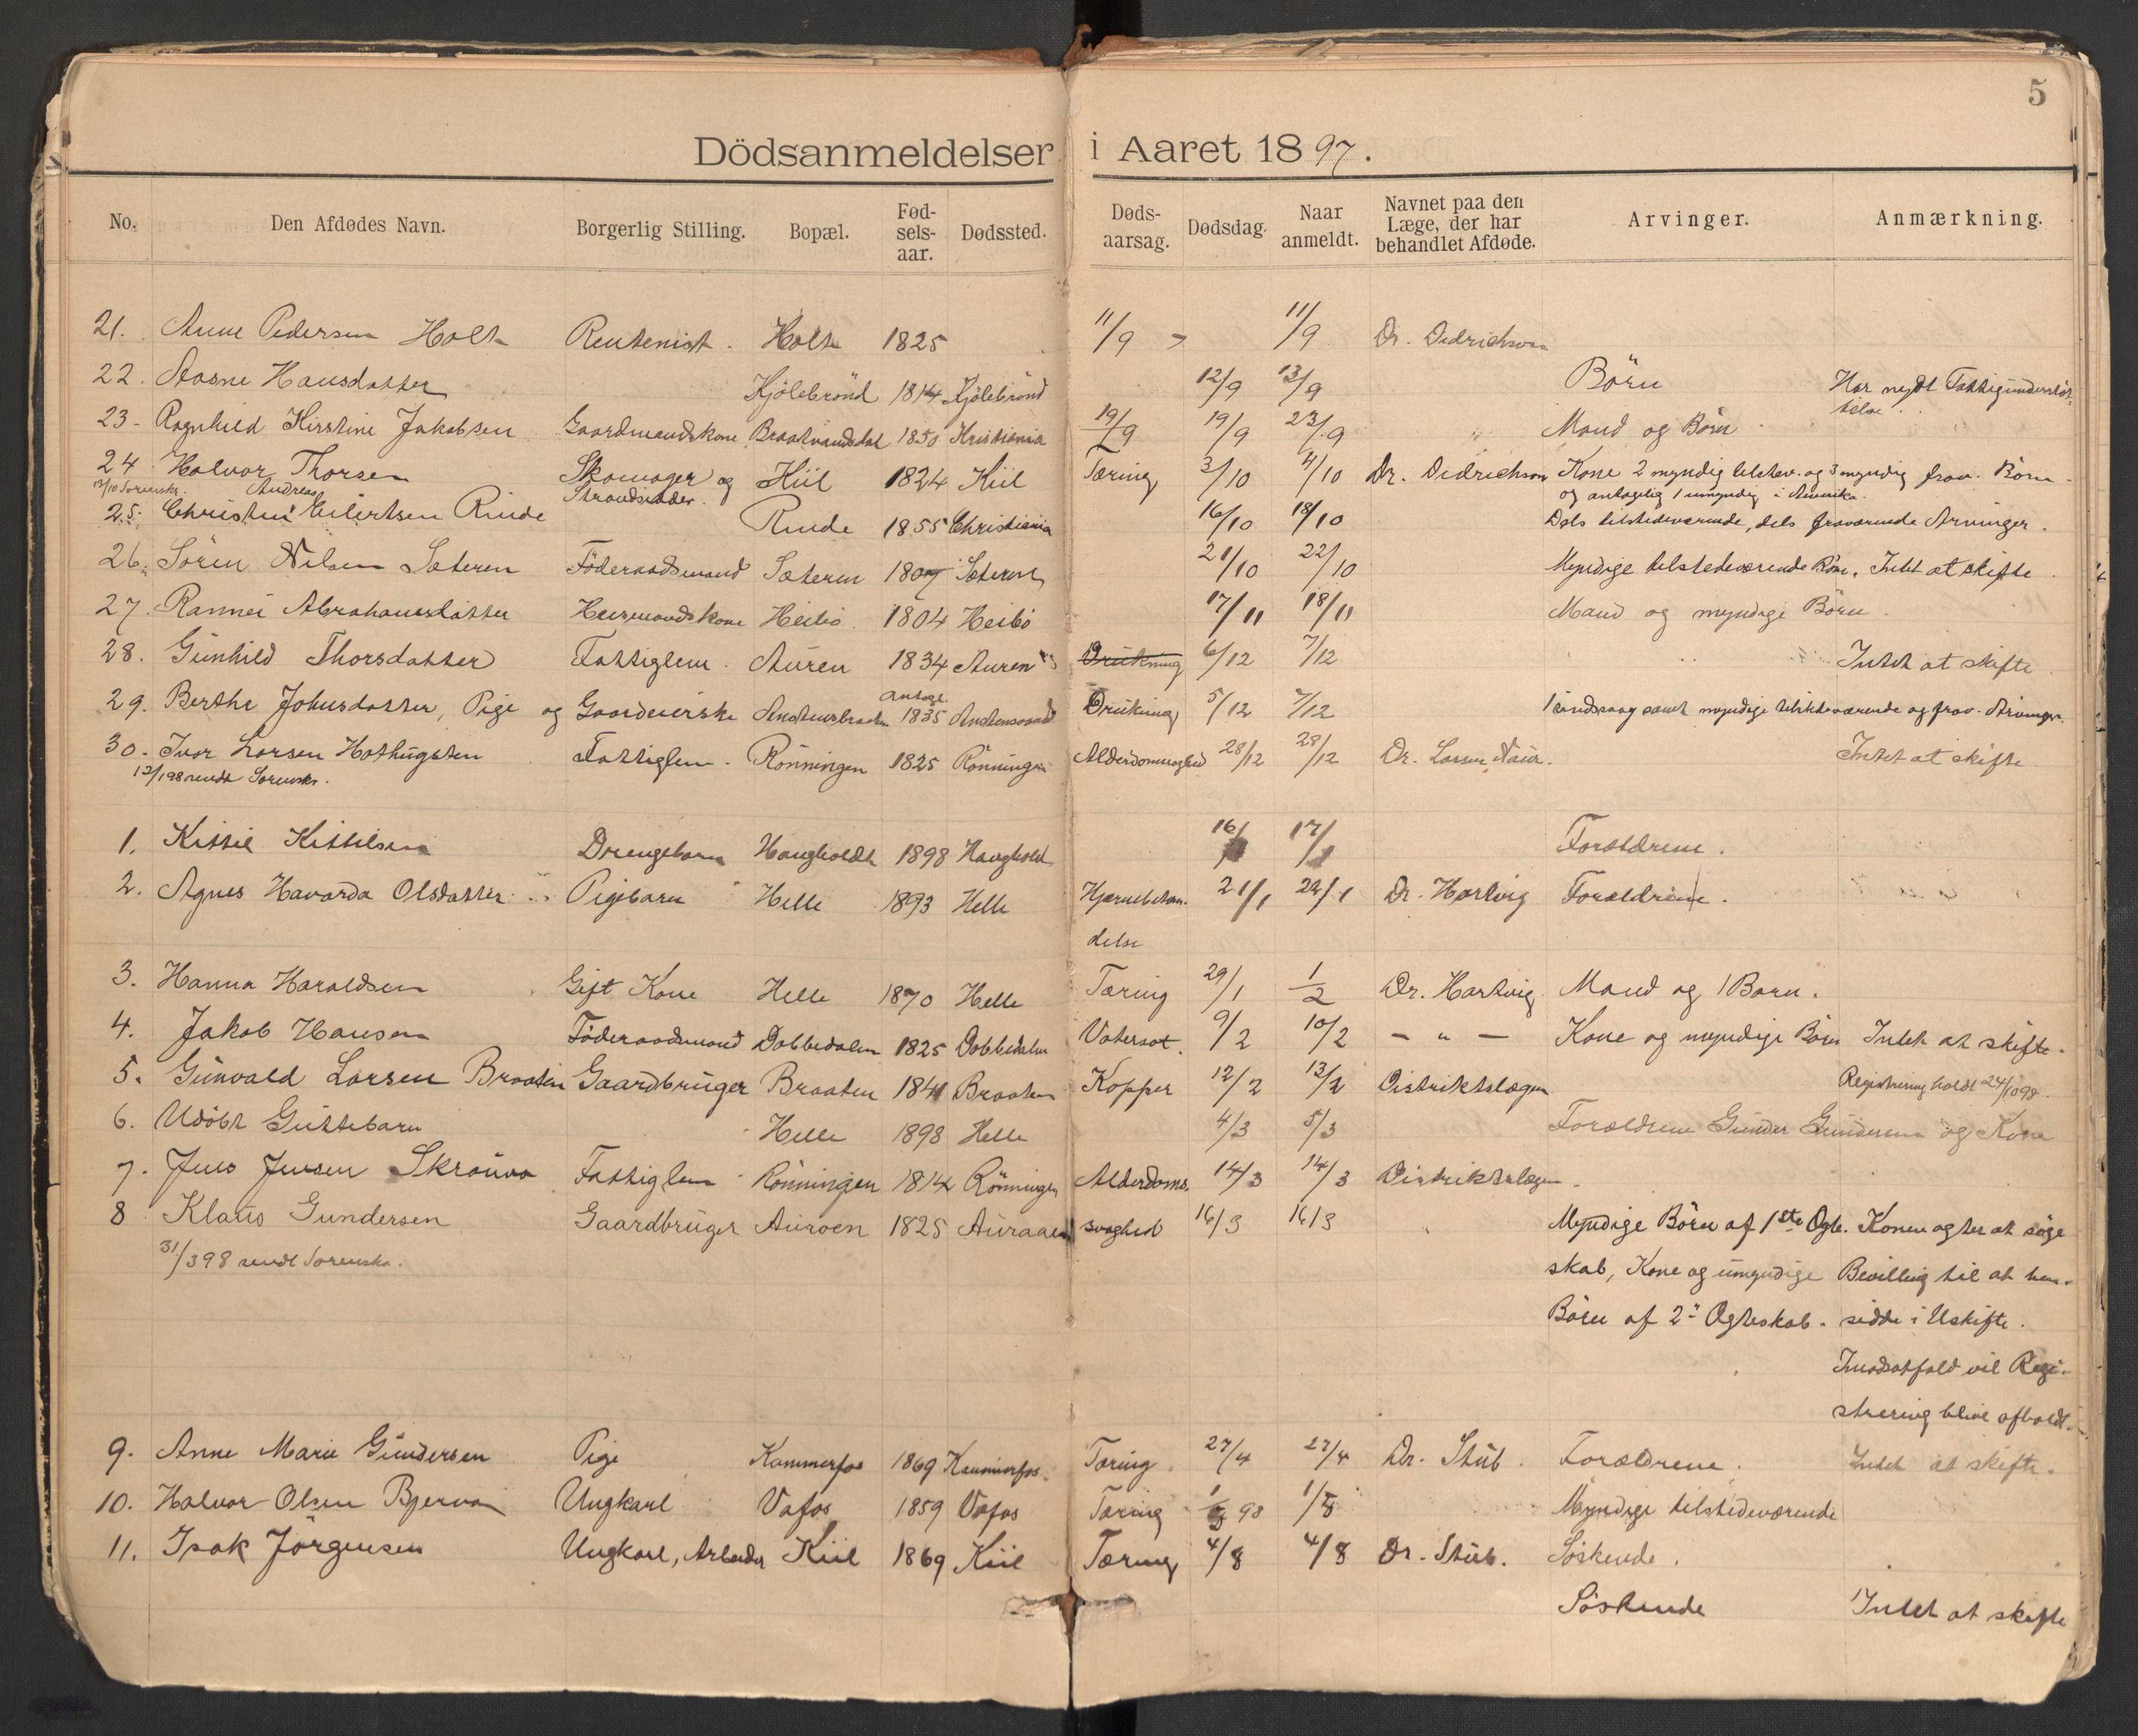 5
Dödsanmeldelser i Aaret 1897.
No. Den Afdødes Navn. Borgerlig Stilling. Bopæl. Fød-sels-aar. Dødssted. Døds-aarsag. Dødsdag. Naar anmeldt. Navnet paa den Læge, der har behandlet Afdøde. Arvinger. Anmærkning.
21. Anne Pedersen Holt Rentenist. Holt 1825 11/9 11/9 Dr. Dedrichson
22. Aasne Hansdatter Kjölebrönd 1814 Kjölebrönd 12/9 13/9 Börn Har nydt Fattigunderstöt-
telse.
23. Ragnhild Kirstine Jakobsen Gaardmandskone Braatvandsdal 1850 Kristiania 19/9 19/9 23/9 " Mand og Börn
24 Halvor Thorsen Skomager og Kiil 1824 Kiil Tæring 3/10 4/10 Dr. Didrichson Kone 2 myndig tilstev. og 3 myndig frav. Börn
13/10 Sorenskr. Andreas Strandsidder. og antagelig 1 umyndig i Amerika.
25. Christen Eilertsen Rinde Rinde 1855 Christiania 16/10 18/10 Dels tilstedeværende, dels fraværende Arvinger.
26. Sören Nilsen Sæteren Föderaadsmand Sæteren 1807 Sæteren 21/10 22/10 Myndige tilstedeværende Börn. Intet at skifte
27. Rannei Abrahamsdatter Huusmandskone Heibö 1804 Heibö 17/11 18/11 Mand og myndige Börn.
28. Gunhild Thorsdatter Fattiglem. Auren 1834 Auren Drukning 6/12 7/12 Intet at skifte
29. Berthe Johnsdatter, Pige og Gaardeierske 1835 Drukning 5/12 7/12 samt myndige tilstedeværende og frav. Arvinger.
antagl.
30. Ivar Larsen Fattiglem. Rönningen 1825 Rönningen Alderdomssvaghed 28/12 28/12 Dr. Larsen Intet at skifte
12/1 98 sendt Sorenskr.
1. Kittil Kittilsen Drengebarn Haugholdt 1898 Haughold 16/1 17/1 Forældrene.
2. Agnes Havarda Olsdatter Pigebarn Helle 1893 Helle Hjernebetæn- 21/1 22/1 Dr. Hartvig Forældrene.
delse
3. Hanna Haraldsen Gift Kone Helle 1870 Helle Tæring 29/1 1/2 Dr. Hartvig Mand og 1 Barn.
4. Jakob Hansen Föderaadsmand Dobbedalen 1825 Dobbedalen Vatersot. 9/2 10/2 - " - Kone og myndige Börn Intet at skifte.
5. Gunvald Larsen Braaten Gaardbruger Braaten 1841 Braaten Kopper 12/2 13/2 Distriktslægen Registrering holdt 24/10 98.
6. Udöbt Guttebarn Helle 1898 Helle 4/3 5/3 Forældrene Gunder Gundersen og Kone
7. Jens Jensen Skrauva Fattiglem Rönningen 1814 Rönningen Alderdoms- 14/3 14/3 Distriktslægen.
8 Klaus Gundersen Gaardbruger Auroen 1825 Auraaen svaghed 16/3 16/3 Myndige Börn af 1ste Ægte- Konen agter at söge
31/3 98 sendt Sorenskr. skab, Kone og umyndige Bevilling til at hen-
Börn af 2' Ægteskab. sidde i Uskifte.
Imodsatfald vil Regi-
strering blive afholdt.
9. Anne Marie Gundersen Pige Kammerfos 1869 Kammerfos. Tæring. 27/4 27/4 Dr. Stub. Forældrene. Intet at skifte.
10. Halvor Olsen Bjerva Ungkarl Vafos 1859 Vafos Tæring 1/8 98 1/8 Myndige tilstedeværende
11. Isak Jörgensen Ungkarl, Arbeider Kiil 1869 Kiil Tæring 4/8 4/8 Dr. Stub. Söskende.
Söskende Intet at skifte